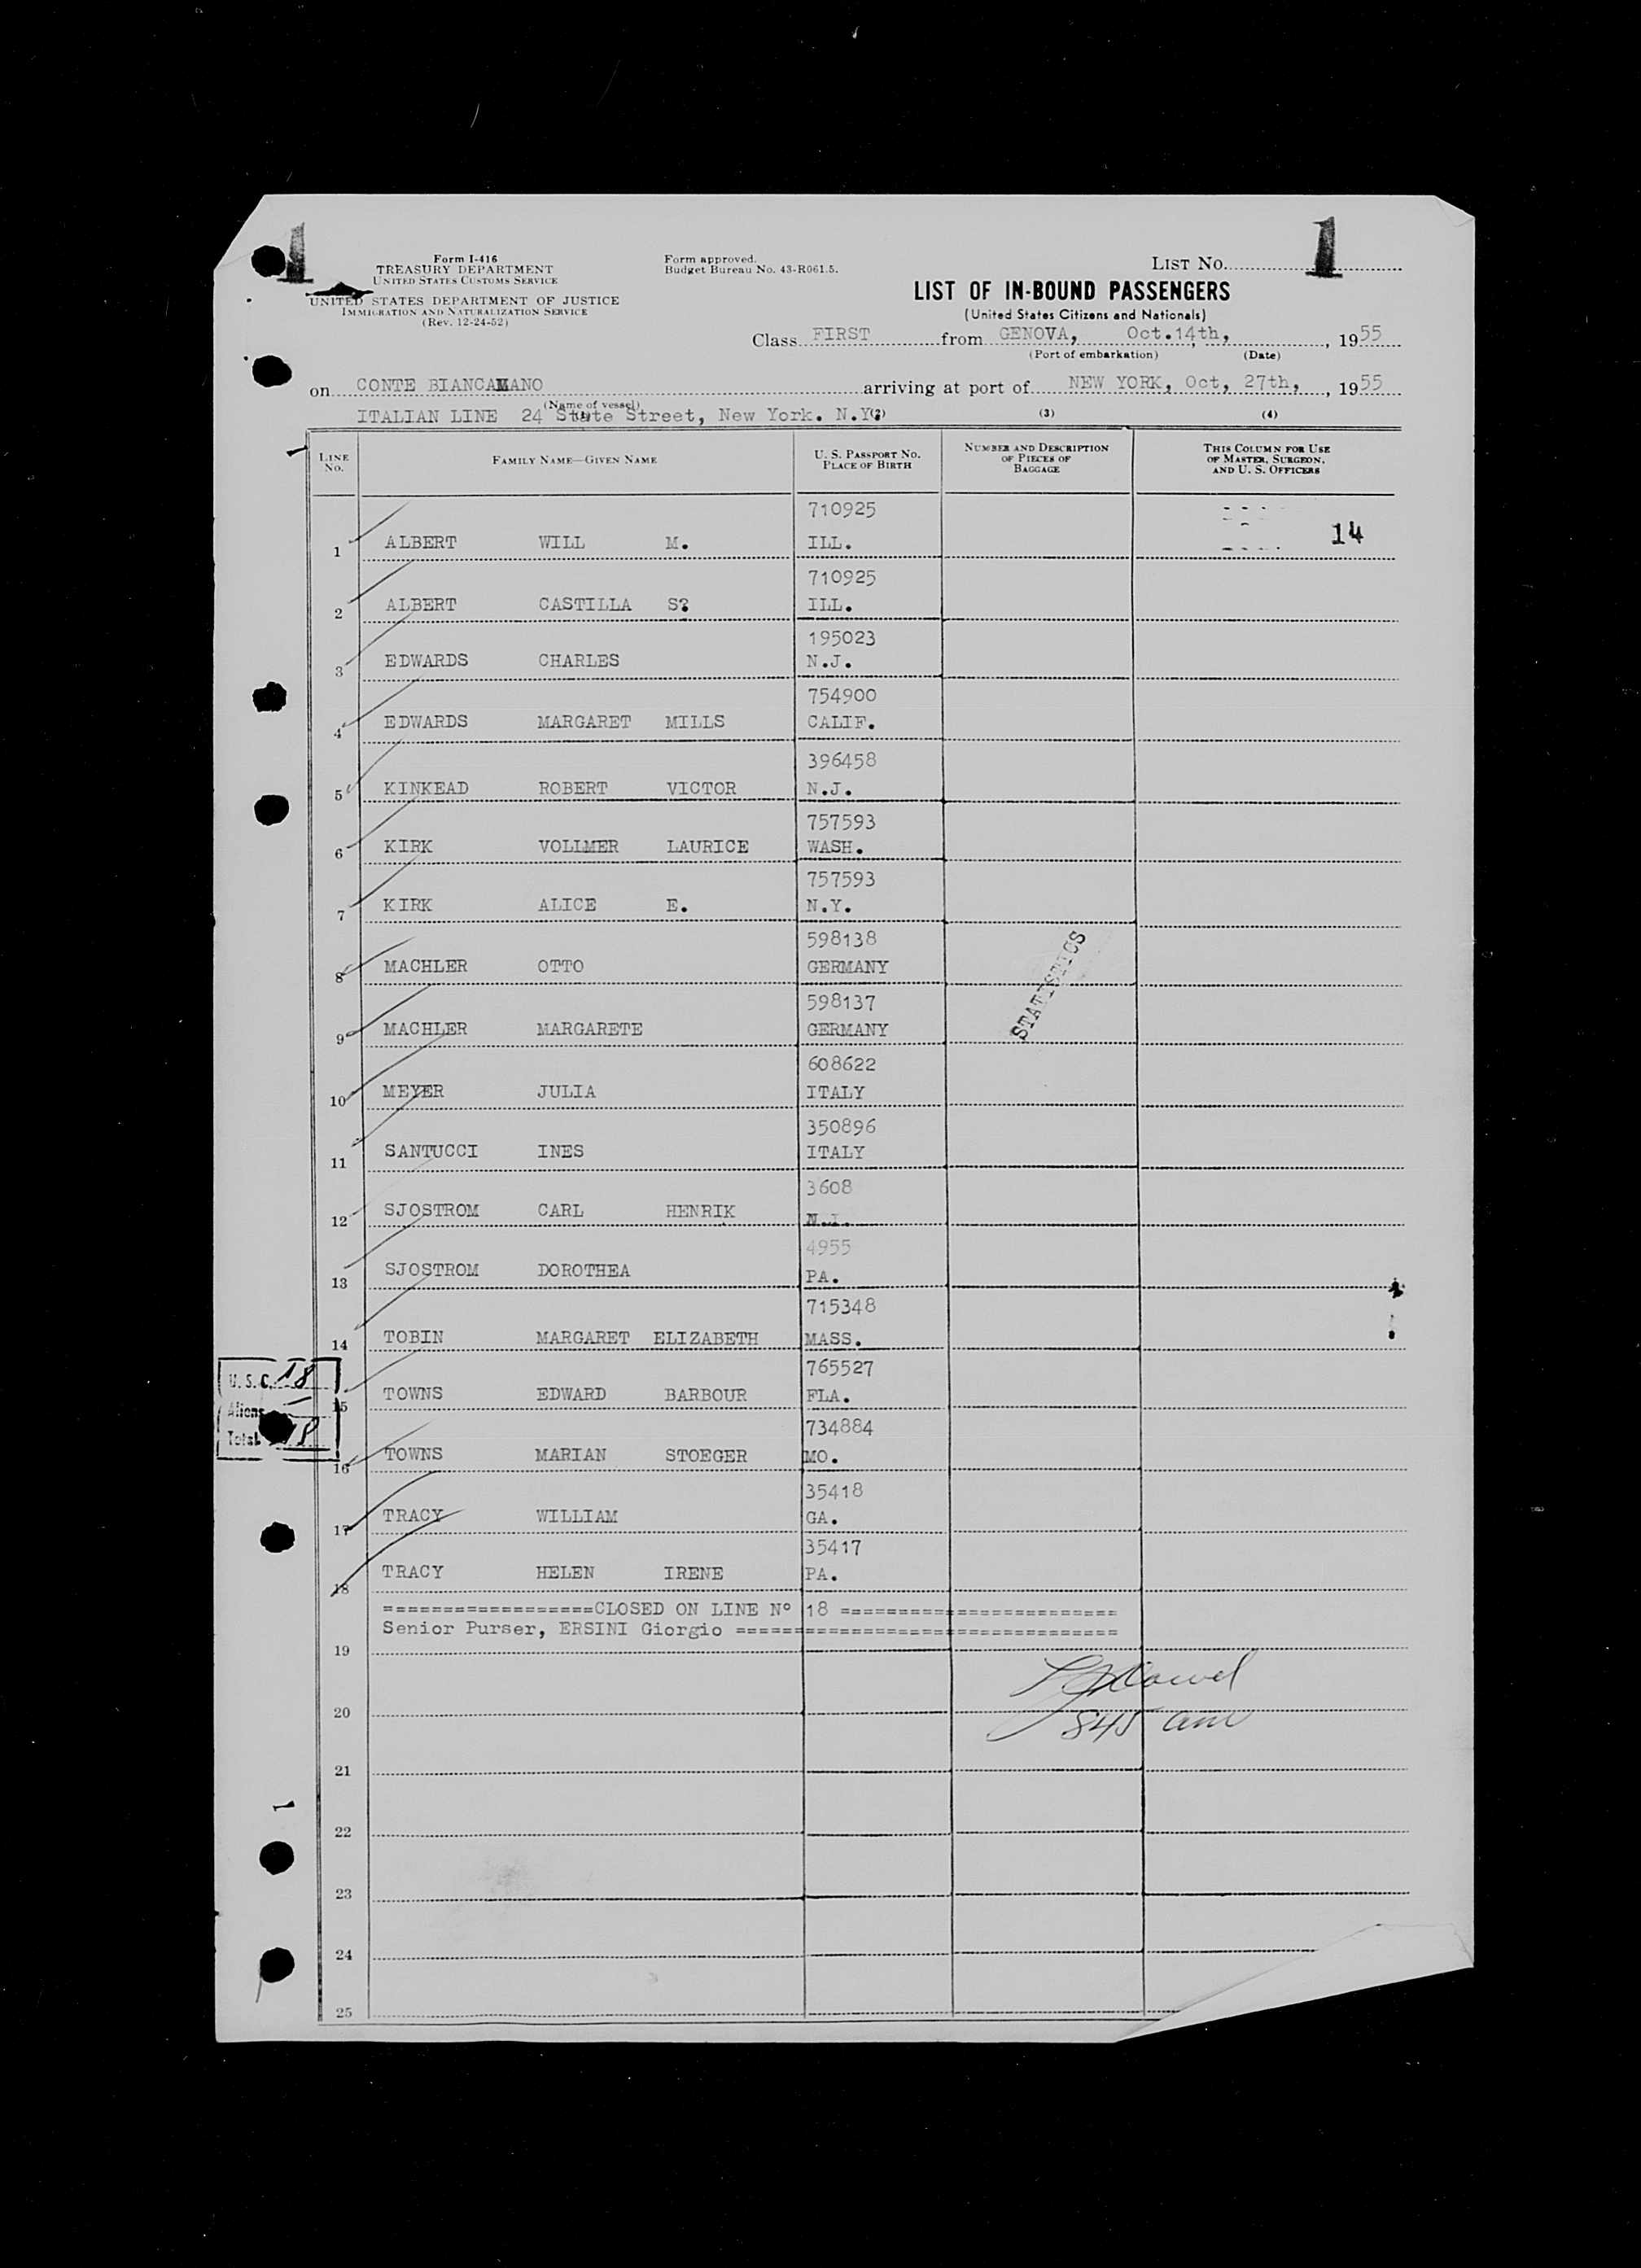 1 1
Form I-416
TREASURY DEPARTMENT
UNITED STATES CUSTOMS SERVICE
UNITED STATES DEPARTMENT OF JUSTICE
IMMIGRATION AND NATURALIZATION SERVICE
(Rev. 12-24-52)
Form approved.
Budget Bureau No. 43-R061.5.
LIST NO.
LIST OF IN-BOUND PASSENGERS
(United States Citizens and Nationals)
Class FIRST from GENOVA, Oct.14th, , 1955
(Port of embarkation) (Date)
on CONTE BIANCAMANO arriving at port of NEW YORK, Oct, 27th, , 1955
(Name of vessel)
ITALIAN LINE 24 State Street, New York. N.Y. (2) (3) (4)
LINE NO. FAMILY NAME—GIVEN NAME U. S. PASSPORT NO. PLACE OF BIRTH NUMBER AND DESCRIPTION OF PIECES OF BAGGAGE THIS COLUMN FOR USE OF MASTER, SURGEON, AND U. S. OFFICERS
710925
1 ALBERT WILL M. ILL. 14
710925
2 ALBERT CASTILLA S? ILL.
195023
3 EDWARDS CHARLES N.J.
754900
4 EDWARDS MARGARET MILLS CALIF.
396458
5 KINKEAD ROBERT VICTOR N.J.
757593
6 KIRK VOLLMER LAURICE WASH.
757593
7 KIRK ALICE E. N.Y.
598138
8 MACHLER OTTO GERMANY
598137
9 MACHLER MARGARETE GERMANY
STATISTICS
608622
10 MEYER JULIA ITALY
350896
11 SANTUCCI INES ITALY
3608
12 SJOSTROM CARL HENRIK
4955
13 SJOSTROM DOROTHEA PA.
715348
14 TOBIN MARGARET ELIZABETH MASS.
765527
15 TOWNS EDWARD BARBOUR FLA.
734884
16 TOWNS MARIAN STOEGER MO.
U. S. C. 18
Aliens —
Total 18
35418
17 TRACY WILLIAM GA.
35417
18 TRACY HELEN IRENE PA.
==================CLOSED ON LINE Nº 18 ========================
Senior Purser, ERSINI Giorgio =================================
19
20
845 am
21
22
23
24
25